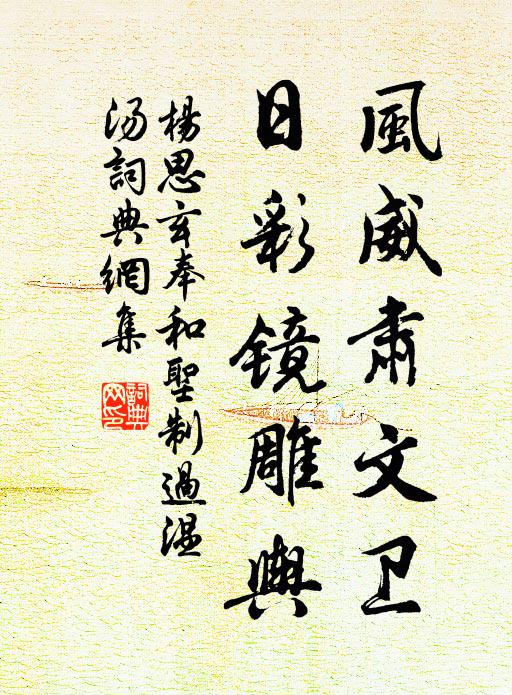 風威肅文卫
日彩镜雕輿
楊思玄奉和聖制過温
汤詞典網集
詞典网印